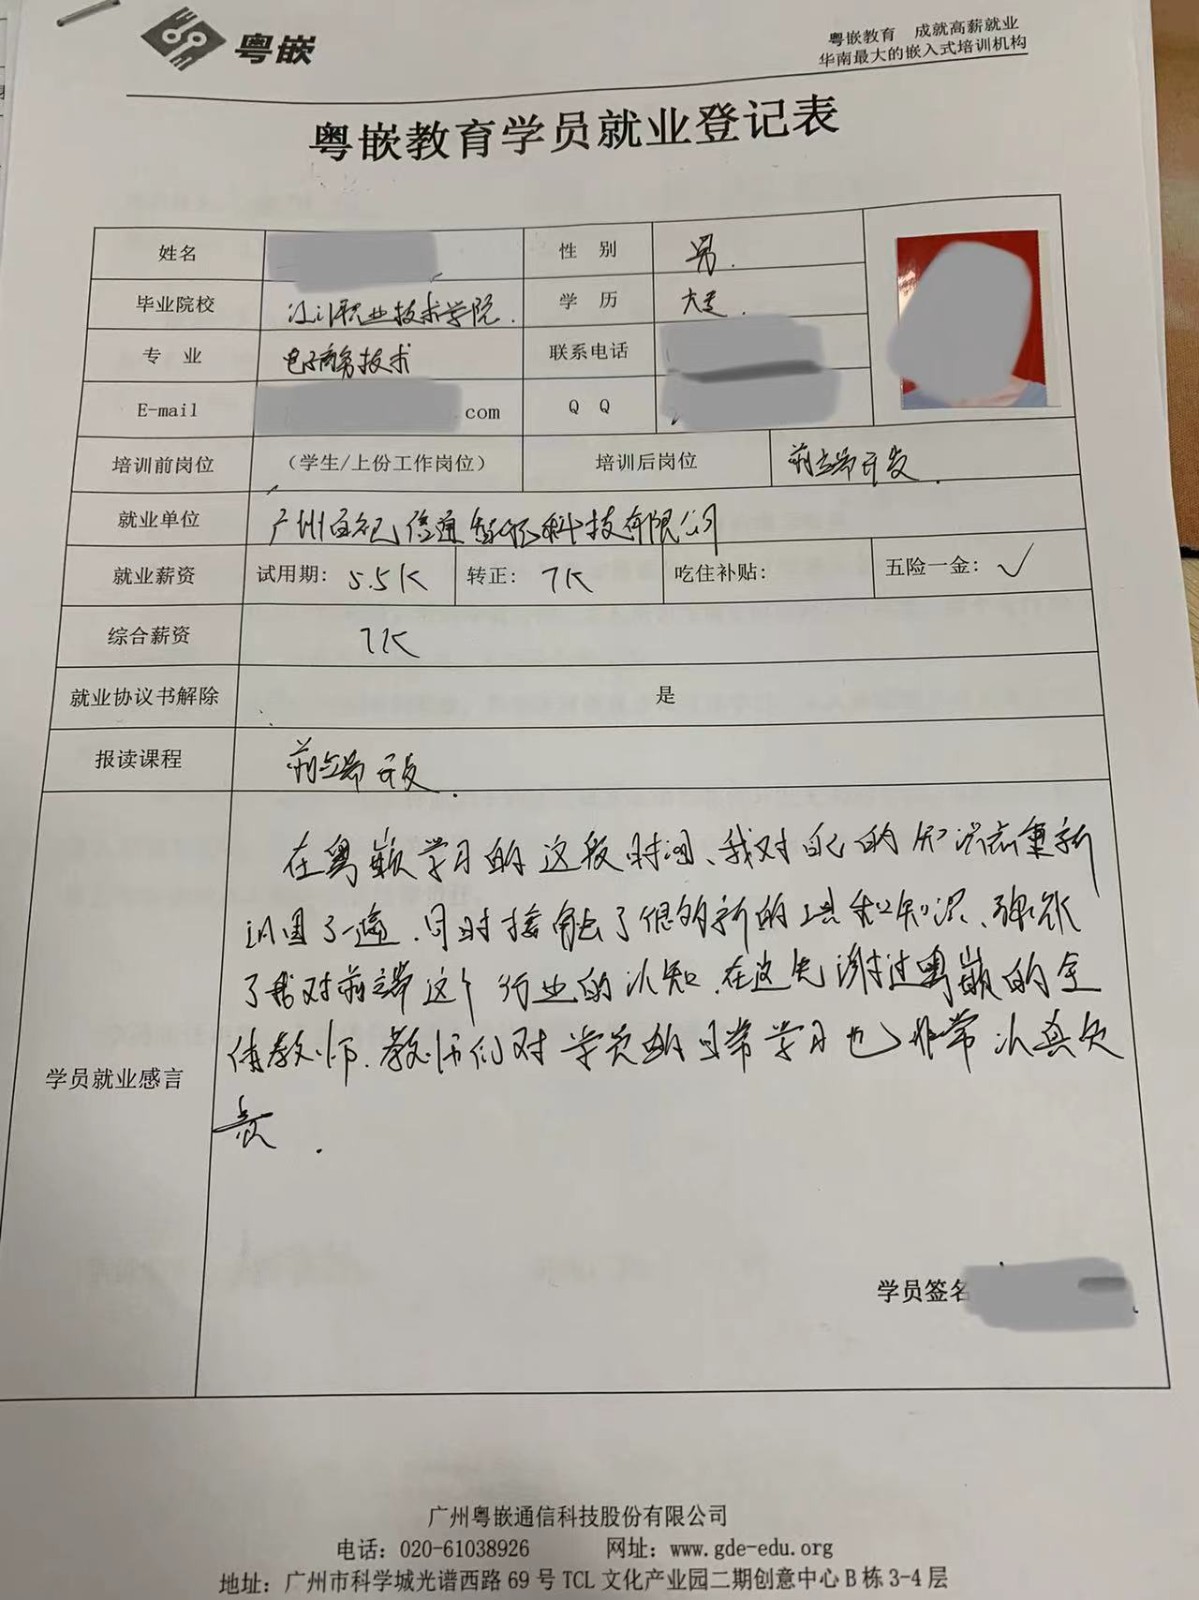 粤嵌
粤嵌教育 成就高薪就业
华南最大的嵌入式培训机构
粤嵌教育学员就业登记表
姓名
性 别 男.
毕业院校 江门职业技术学院.
学 历 大专.
专 业 电子商务技术
联系电话
E-mail com
Q Q
培训前岗位 （学生/上份工作岗位）
培训后岗位 前端开发.
就业单位 广州 信通 科技有限公司
就业薪资 试用期: 5.5K 转正: 7K 吃住补贴: 五险一金: ✓
综合薪资 7K
就业协议书解除 是
报读课程 前端开发.
学员就业感言
在粤嵌学习的这段时间、我对自己的知识点重新
巩固了一遍.同时接触了很多新的 知识、
了我对前端这个行业的认知.在这先谢过粤嵌的全
体教师.教师们对学员的日常学习也非常认真负
责.
学员签名
广州粤嵌通信科技股份有限公司
电话: 020-61038926 网址: www.gde-edu.org
地址: 广州市科学城光谱西路 69 号 TCL 文化产业园二期创意中心 B 栋 3-4 层